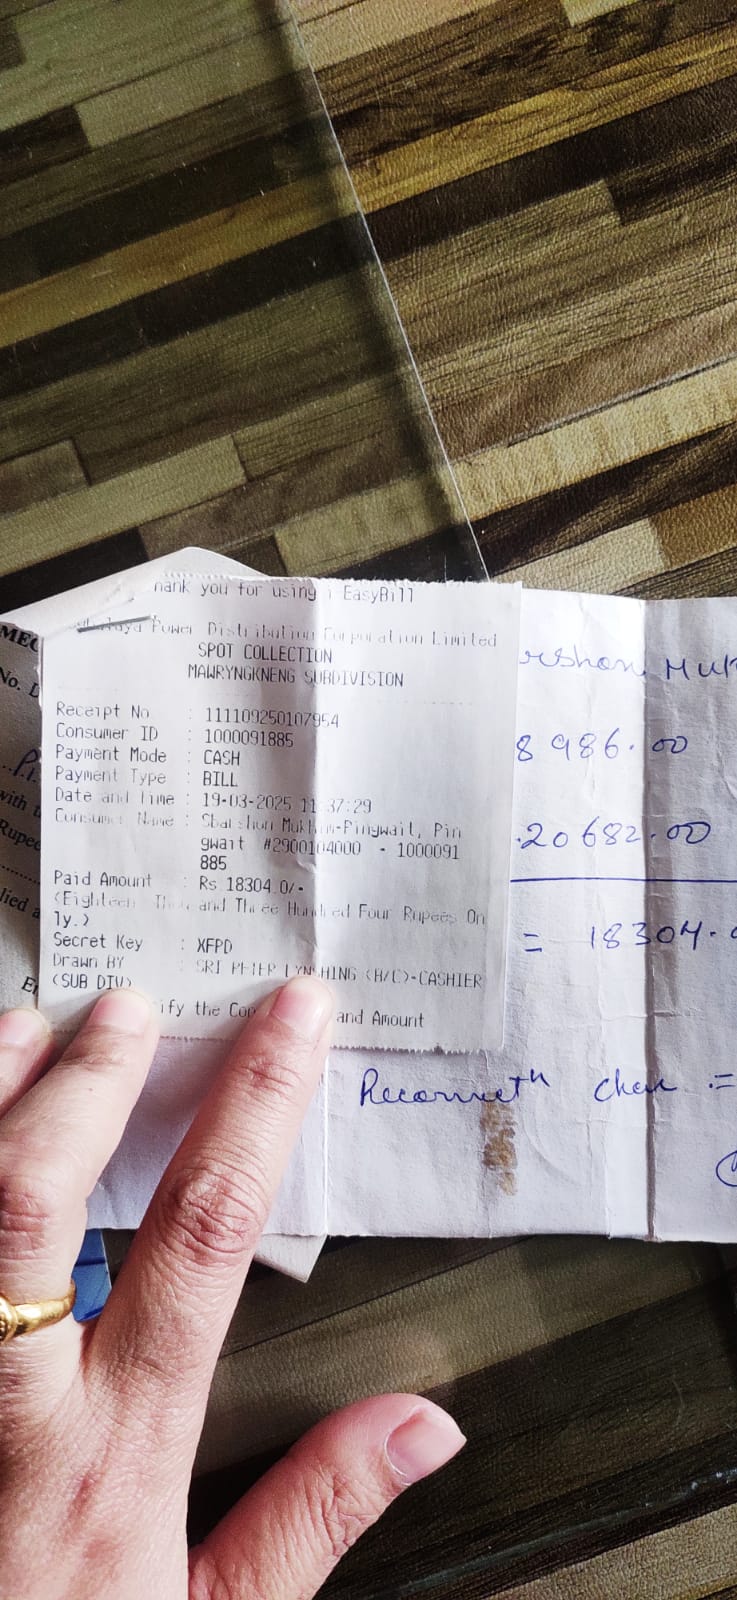 hank you for using i-EasyBill
Power Distribution Corporation Limited
SPOT COLLECTION
MAWRYNGKNENG SUBDIVISION
Receipt No : 111109250107954
Consumer ID : 1000091885
Payment Mode : CASH
Payment Type : BILL
Date and Time : 19-03-2025 11:37:29
Consumer Name : Sbarshon Mukhim-Pingwait, Pin
gwait #2900104000 - 1000091
885
Paid Amount : Rs.18304.0/-
(Eighteen Thousand Three Hundred Four Rupees On
ly.)
Secret Key : XFPD
Drawn BY : SRI PETER LYNSHING (B/C)-CASHIER
(SUB DIV)
ify the Con and Amount
MEC
No. D
with t
Rupee
lied a
rshon Muk
8986.00
20682.00
= 18304.
Reconnectn :=